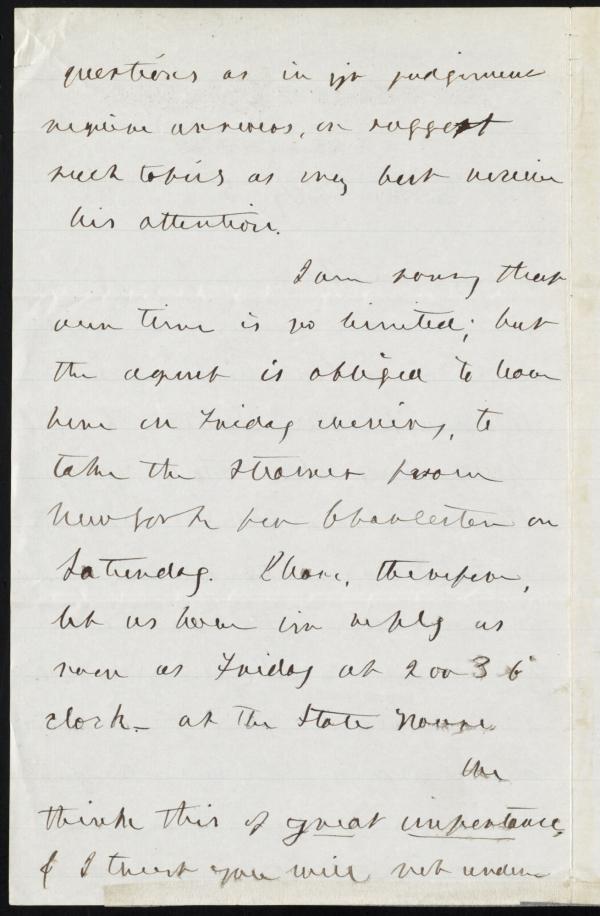 questions as in yr judgement
require answers, or suggest
such topics as may best receive
his attention.
I am sorry that
our time is so limited; but
the agent is obliged to leave
here on Friday evening, to
take the steamer from
New York for Charleston on
Saturday. Please, therefore,
let us have yr reply as
soon as Friday at 2 or 3 o'
clock - at the State House
We
think this of great importance,
& I trust you will not under